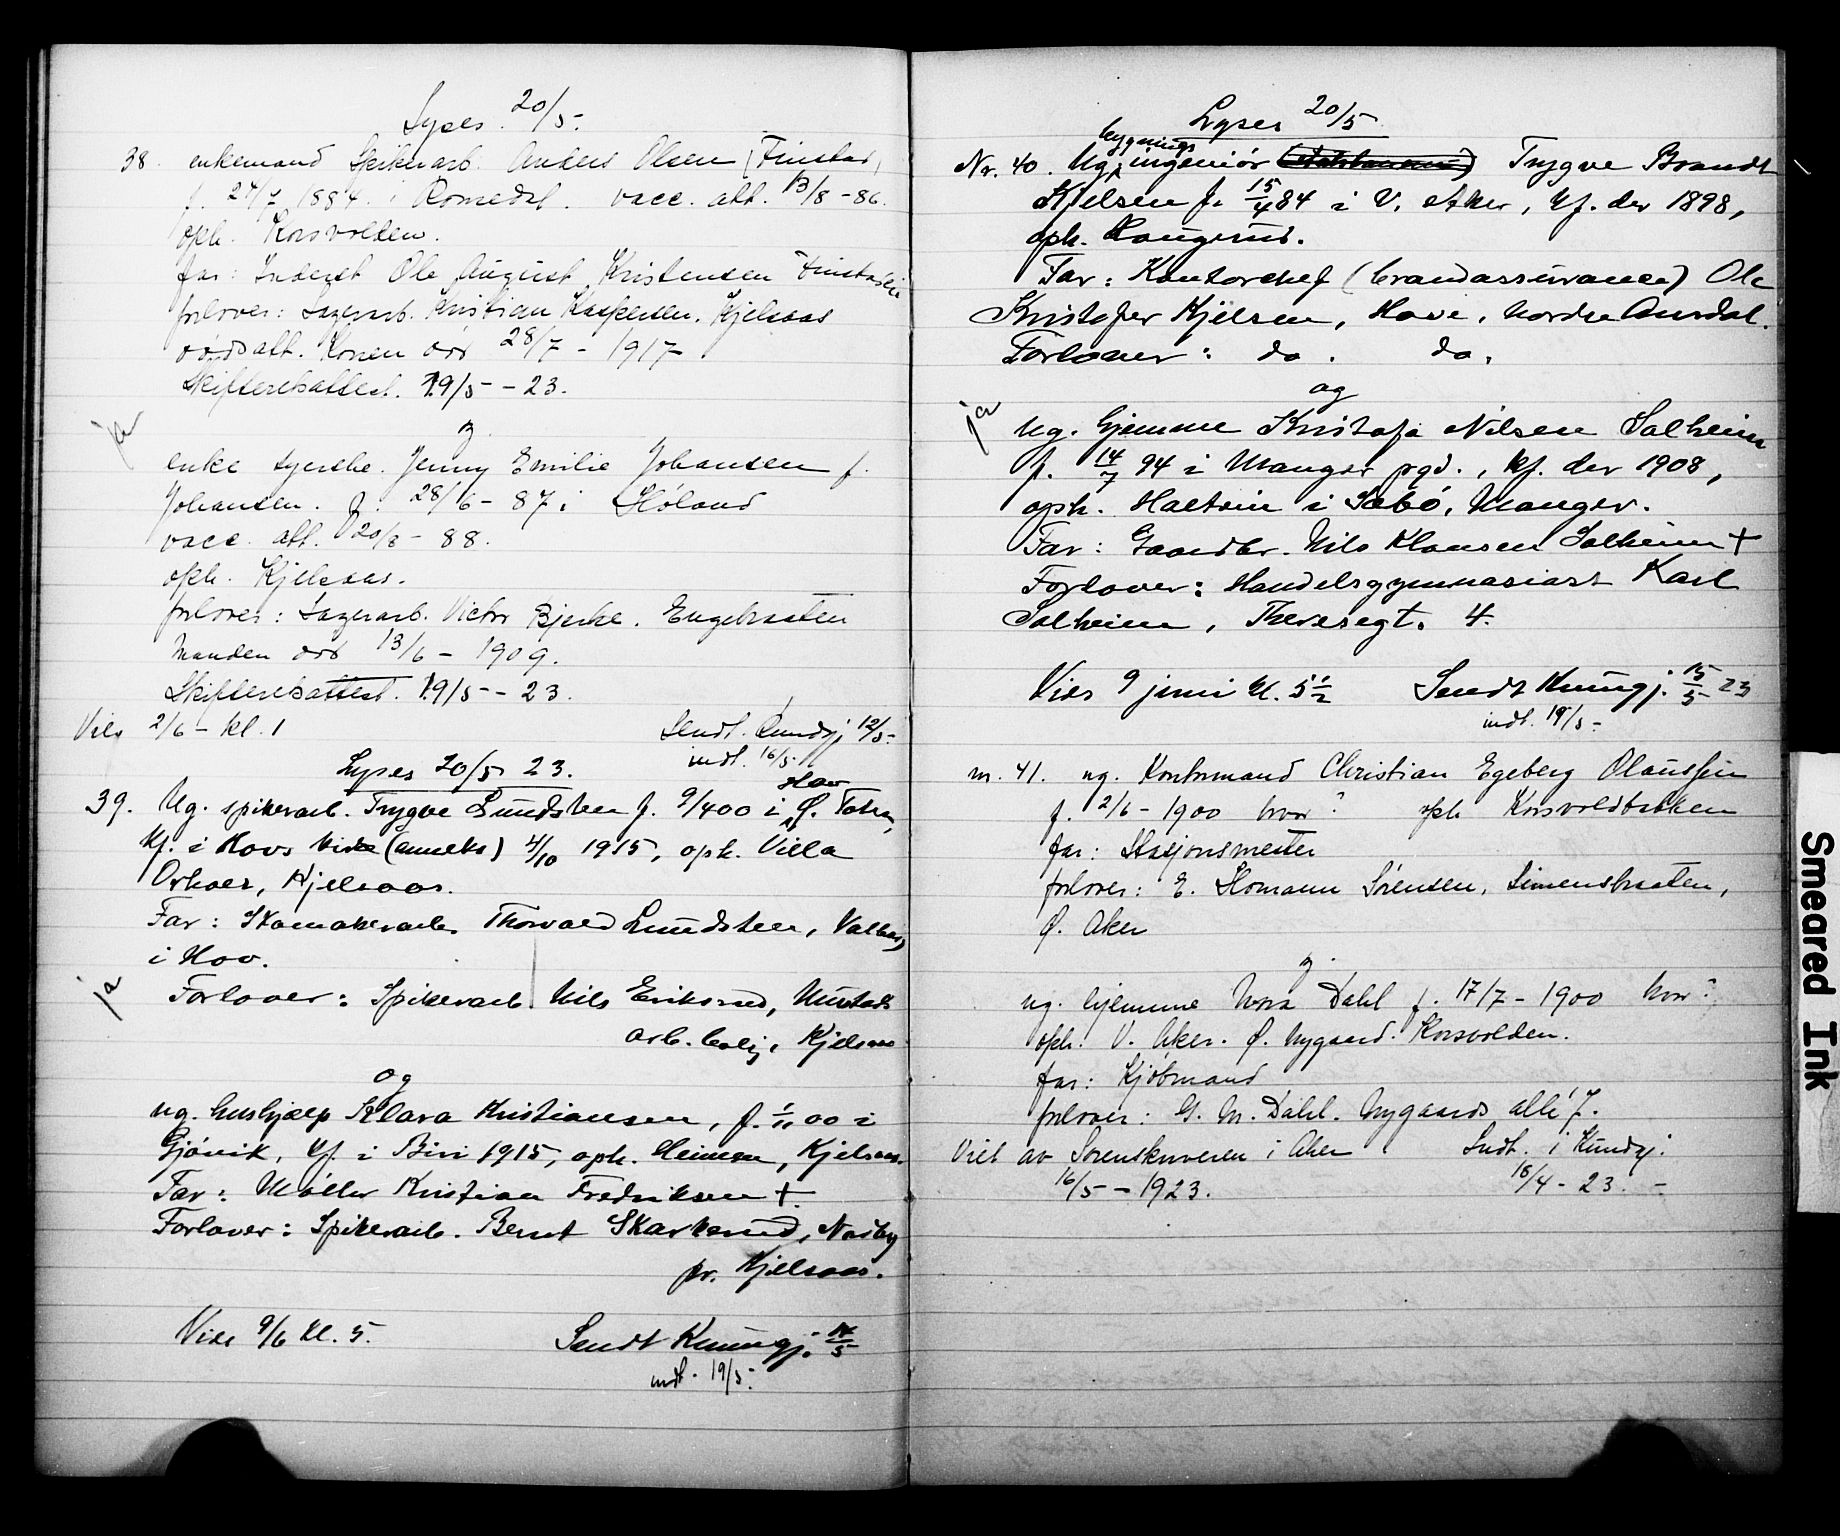 Lyses 20/5.
38. enkemand Spikerarb. Anders Olsen (Finstad,
f. 24/7 1884 i Romedal. vacc. att. 13/8 - 86.
oph. Korsvolden.
far: Inderst Ole August Kristensen
forlover: Lagerarb. Kristian Kaspersen. Kjelsaas
dødsatt. Konen død 28/7 - 1917
Skifteretsattest. 19/5 - 23.
ja
og
enke syerske. Jenny Emilie Johansen f.
Johansen. f. 28/6 - 87 i Høland
vacc. att. 20/8 - 88.
oph. Kjelsaas.
forlover: Lagerarb. Victor Bjerke. Engebraaten
Manden død 13/6 - 1909.
Skifteretsattest. 19/5 - 23.
Viet 2/6 - kl. 1 Sendt. Kundgj 12/5.
indt. 16/5.
Lyses 20/5 23.
Hov
39. Ug. spikerarb. Trygve Lundsteen f. 9/4 00 i Ø. Toten,
kf. i Hovs kirke (anneks) 4/10 1915, oph. Villa
Kjelsaas.
Far: Skomakerarb. Thorvald Lundsteen,
i Hov.
ja
Forlover: Spikerarb. Nils Eriksrud, Mustads
arb. bolig, Kjelsaas
og
ug. hushjælp Klara Kristiansen, f. 1/11 00 i
Gjøvik, kf. i Biri 1915, oph. Heimen, Kjelsaas.
Far: Møller Kristian Fredriksen +
Forlover: Spikerarb. Bernt Skarkerud, Nordby
pr. Kjelsaas.
Vies 9/6 kl. 5. Sendt Kunngj. 14/5
indt. 19/5.
Lyses 20/5.
bygnings
Nr. 40. Ug. ingeniør Trygve Brandt
Kjelsen f. 15/4 84 i V. Aker, kf. der 1898,
oph. Haugerud.
Far: Kontorchef (brandassurance) Ole
Kristofer Kjelsen, Hove, Nordre Aurdal.
Forlover: do. do.
og
ja
Ug. hjemme Kristofa Nilsen Solheim
f. 14/7 94 i Manger pgd., kf. der 1908,
oph. i Sæbø, Manger.
Far: Gaardbr. Nils Klausen Solheim +
Forlover: Handelsgymnasiast Karl
Solheim, Theresegt. 4.
Vies 9 juni kl. 5 1/2 Sendt Kunngj. 15/5 23
indt. 19/5.
nr. 41. ug. Kontormand Christian Egeberg Olaussen
f. 2/6 - 1900 hvor? oph Korsvoldbakken
far: Stasjonsmester
forlover: E. Homann Sørensen, Simensbraaten,
Ø. Aker
og
ug. hjemme Nora Dahl f. 17/7 - 1900 hvor?
oph. V. Aker. Ø. Nygaard. Korsvolden.
far: Kjøbmand
forlover: G. M. Dahl. Nygaards allé 7.
Viet av Sorenskriveren i Aker Sendt. i Kundgj.
16/5 - 1923. 18/4 - 23. -
Smeared Ink